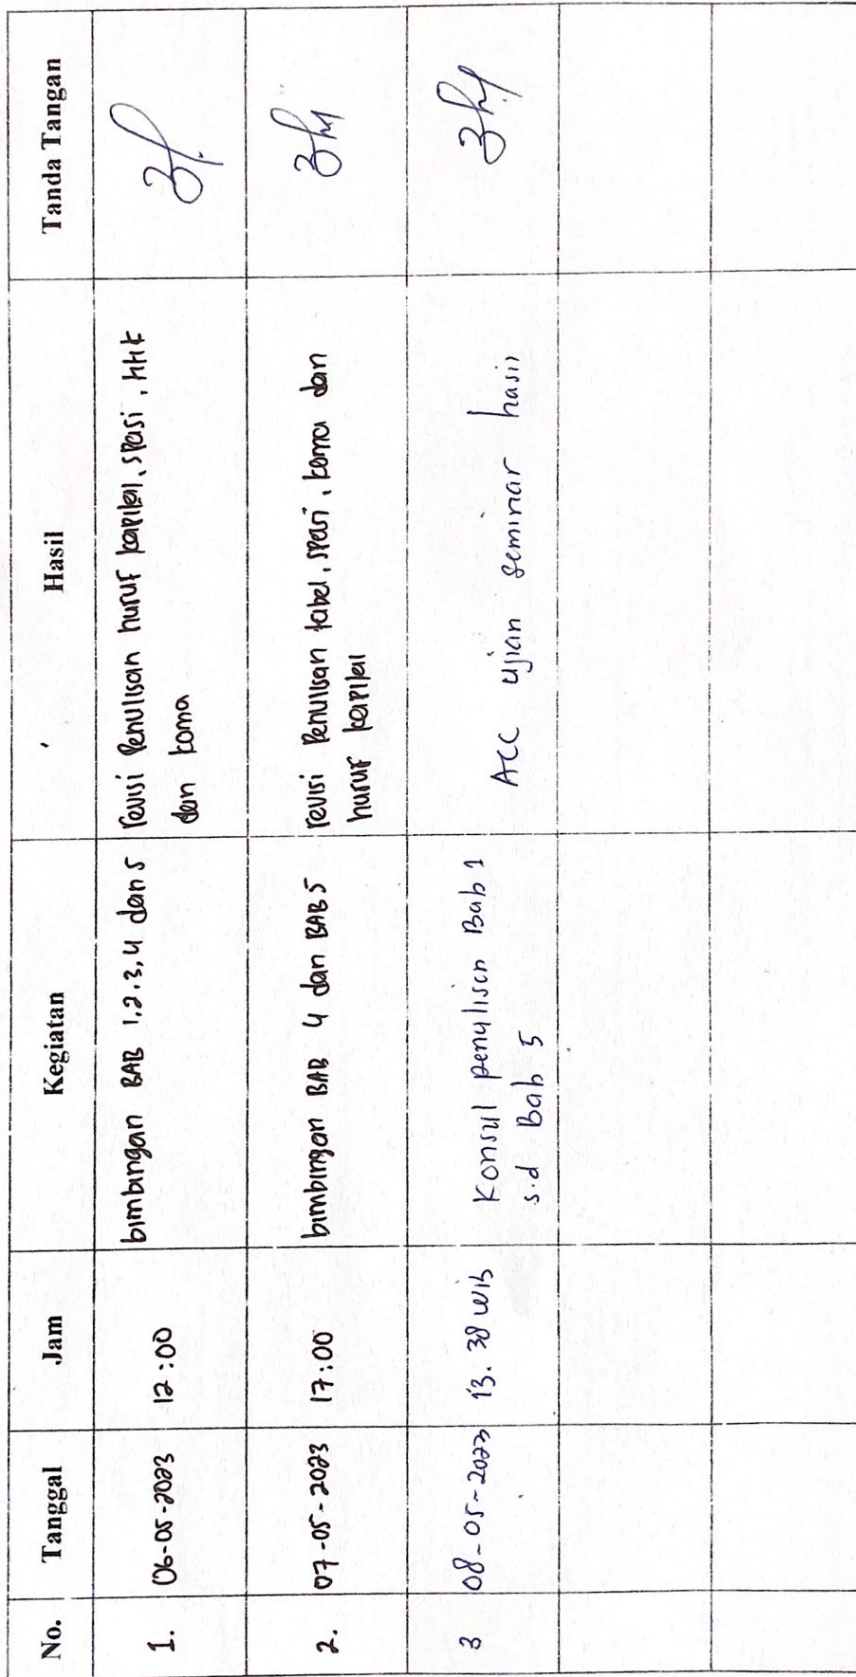 No. Tanggal Jam Kegiatan Hasil Tanda Tangan
1. 06-05-2023 12:00 bimbingan BAB 1,2,3,4 dan 5 revisi Penulisan huruf kapital, spasi,
dan koma
2. 07-05-2023 17:00 bimbingan BAB 4 dan BAB 5 revisi Penulisan tabel, spasi, koma dan
huruf kapital
3 08-05-2023 13.30 WIB Konsul penulisan Bab 1 ACC ujian seminar hasil
s.d Bab 5